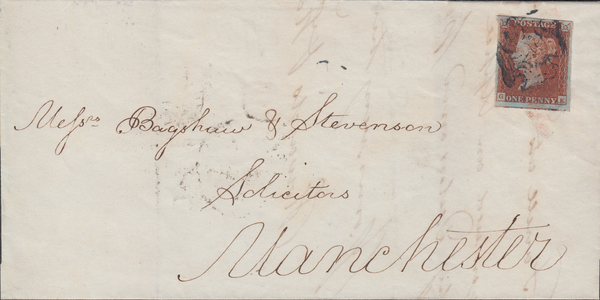 POSTAGE
ONE PENNY
Messrs Bagshaw & Stevenson
Solicitors
Manchester